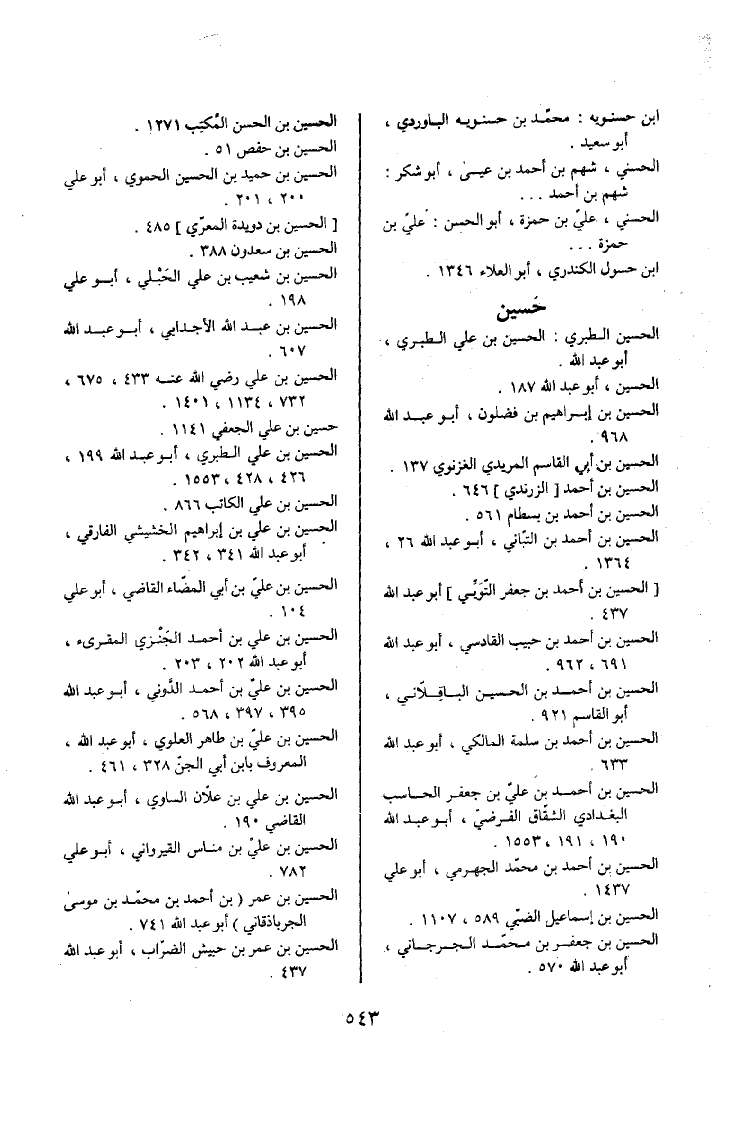 ابن حسنويه : محمّد بن حسنويه الباوردي ،
أبو سعيد .
الحسني ، شهم بن أحمد بن عيسىٰ ، أبو شكر :
شهم بن أحمد ...
الحسني ، عليّ بن حمزة ، أبو الحسن : عليّ بن
حمزة ...
ابن حسول الكندري ، أبو العلاء ١٣٤٦ .
حَسين
الحسين الطبري : الحسين بن علي الطبري ،
أبو عبد الله .
الحسين ، أبو عبد الله ١٨٧ .
الحسين بن إبراهيم بن فضلون ، أبو عبد الله
٩٦٨ .
الحسين بن أبي القاسم المريدي الغزنوي ١٣٧ .
الحسين بن أحمد [ الزرندي ] ٦٤٦ .
الحسين بن أحمد بن بسطام ٥٦١ .
الحسين بن أحمد بن التبّاني ، أبو عبد الله ٢٦ ،
١٣٦٤ .
[ الحسين بن أحمد بن جعفر التّوَيّي ] أبو عبد الله
٤٣٧ .
الحسين بن أحمد بن حبيب القادسي ، أبو عبد الله
٦٩١ ، ٩٦٢ .
الحسين بن أحمد بن الحسين الباقِلّاني ،
أبو القاسم ٩٢١ .
الحسين بن أحمد بن سلمة المالكي ، أبو عبد الله
٦٣٣ .
الحسين بن أحمد بن عليّ بن جعفر الحاسب
البغدادي الشقّاق الفرضيّ ، أبو عبد الله
١٩٠ ، ١٩١ ، ١٥٥٣ .
الحسين بن أحمد بن محمّد الجهرمي ، أبو علي
١٤٣٧ .
الحسين بن إسماعيل الضبّي ٥٨٩ ، ١١٠٧ .
الحسين بن جعفر بن محمّد الجرجاني ،
أبو عبد الله ٥٧٠ .
الحسين بن الحسن المُكتِب ١٢٧١ .
الحسين بن حفص ٥١ .
الحسين بن حميد بن الحسين الحموي ، أبو علي
٢٠٠ ، ٢٠١ .
[ الحسين بن دويدة المعرّي ] ٤٨٥ .
الحسين بن سعدون ٣٨٨ .
الحسين بن شعيب بن علي الحَبْلي ، أبو علي
١٩٨ .
الحسين بن عبد الله الأجدابي ، أبو عبد الله
٦٠٧ .
الحسين بن علي رضي الله عنه ٤٣٣ ، ٦٧٥ ،
٧٣٢ ، ١١٣٤ ، ١٤٠١ .
حسين بن علي الجعفي ١١٤١ .
الحسين بن علي الطبري ، أبو عبد الله ١٩٩ ،
٤٢٦ ، ٤٢٨ ، ١٥٥٣ .
الحسين بن علي الكاتب ٨٦٦ .
الحسين بن علي بن إبراهيم الخشيشي الفارقي ،
أبو عبد الله ٣٤١ ، ٣٤٢ .
الحسين بن عليّ بن أبي المضّاء القاضي ، أبو علي
١٠٤ .
الحسين بن علي بن أحمد الجَنْزي المقرىء ،
أبو عبد الله ٢٠٢ ، ٢٠٣ .
الحسين بن عليّ بن أحمد الدُّوني ، أبو عبد الله
٣٩٥ ، ٣٩٧ ، ٥٦٨ .
الحسين بن عليّ بن طاهر العلوي ، أبو عبد الله ،
المعروف بابن أبي الجنّ ٣٢٨ ، ٤٦١ .
الحسين بن علي بن علّان الساوي ، أبو عبد الله
القاضي ١٩٠ .
الحسين بن عليّ بن مناس القيرواني ، أبو علي
٧٨٢ .
الحسين بن عمر ( بن أحمد بن محمّد بن موسىٰ
الجرباذقاني ) أبو عبد الله ٧٤١ .
الحسين بن عمر بن حبيش الضرّاب ، أبو عبد الله
٤٣٧ .
٥٤٣